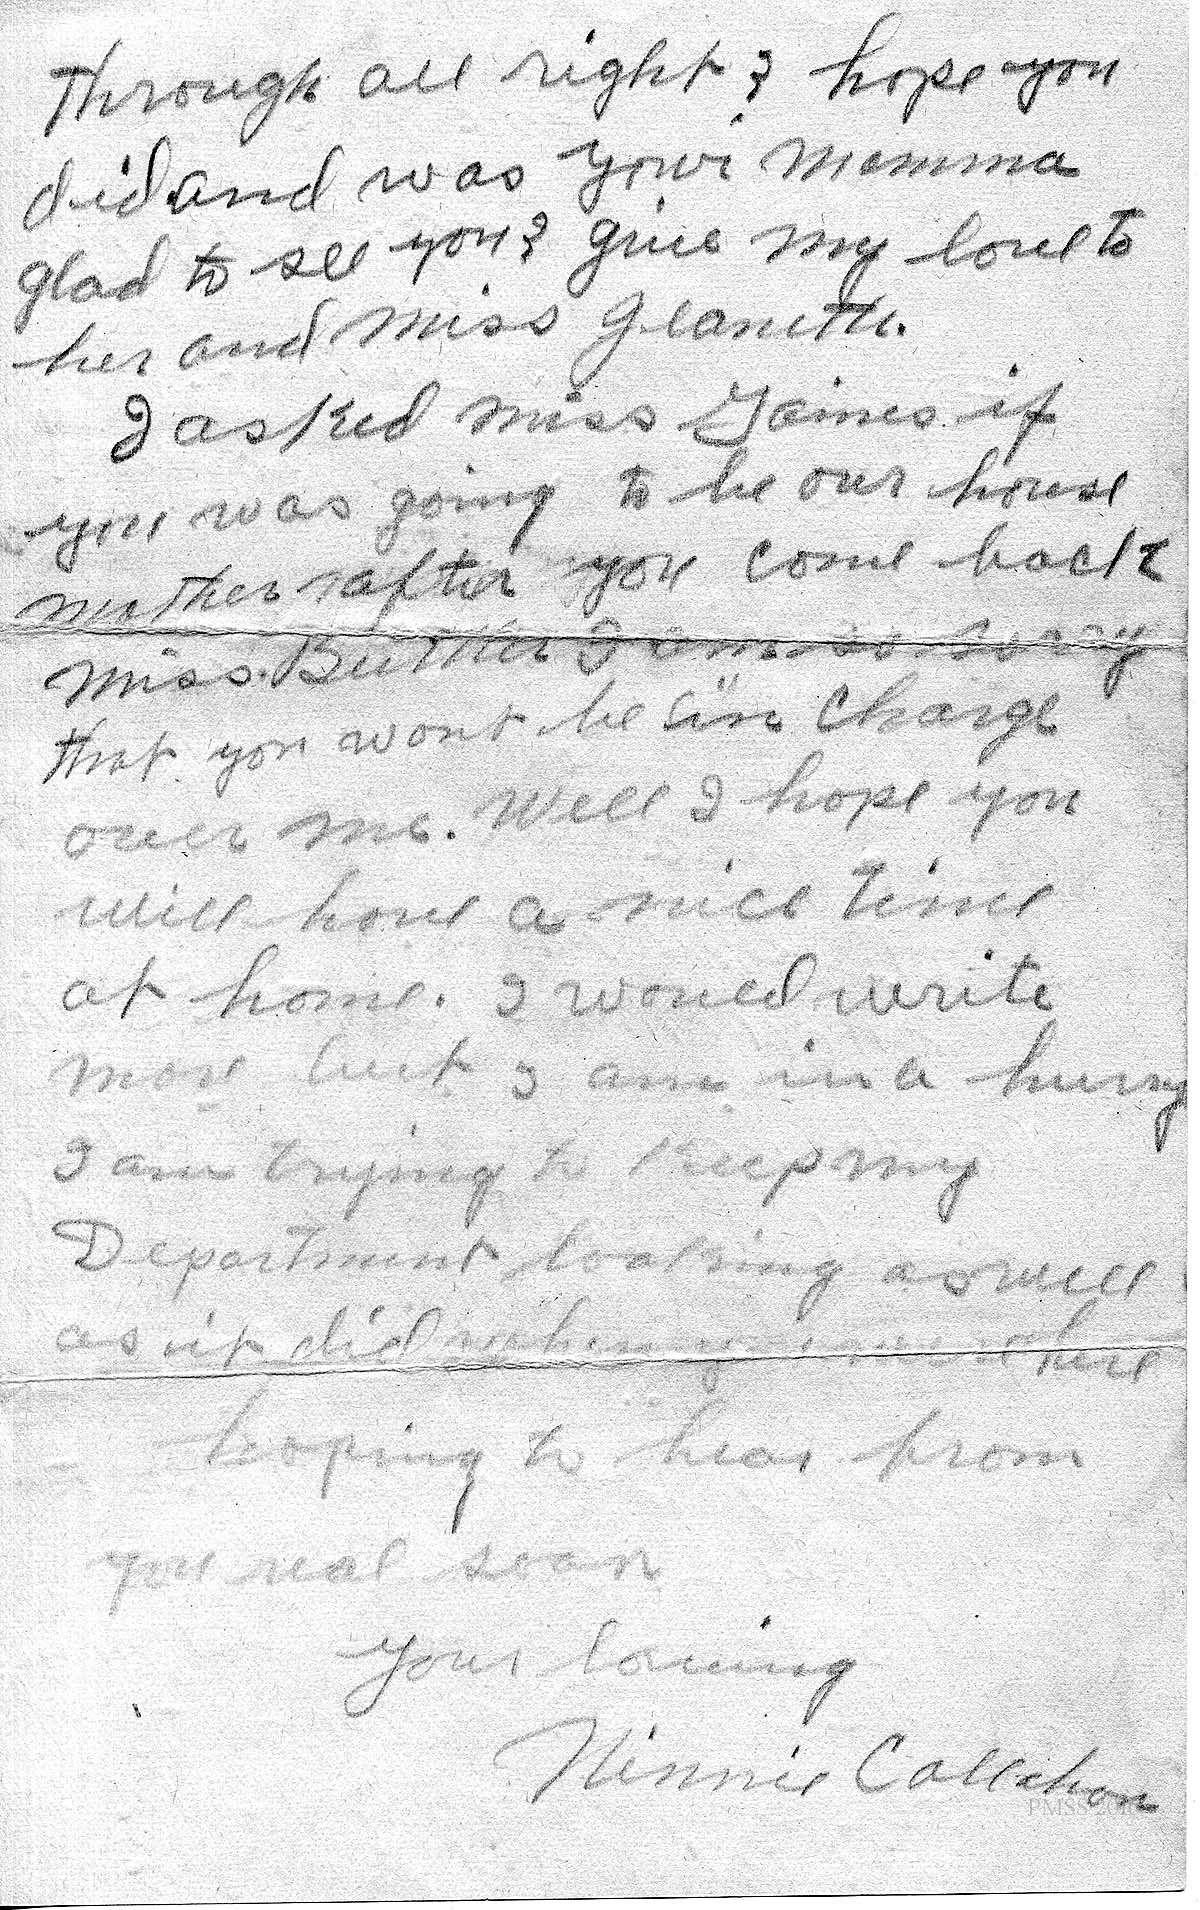 through all right? hope you
did.and was your momma
glad to see you? give my love to
her and miss
I asked miss Gaines if
you was going to be our house
mother after you come back
miss. I am so sorry
that you wont be in charge
over me. Well I hope you
will have a nice time
at home. I would write
more but I am in a hurry
I am trying to keep my
Department looking as well
as it did when you were here
hoping to hear from
you real soon
your loving
Callahan
PMSS 2016